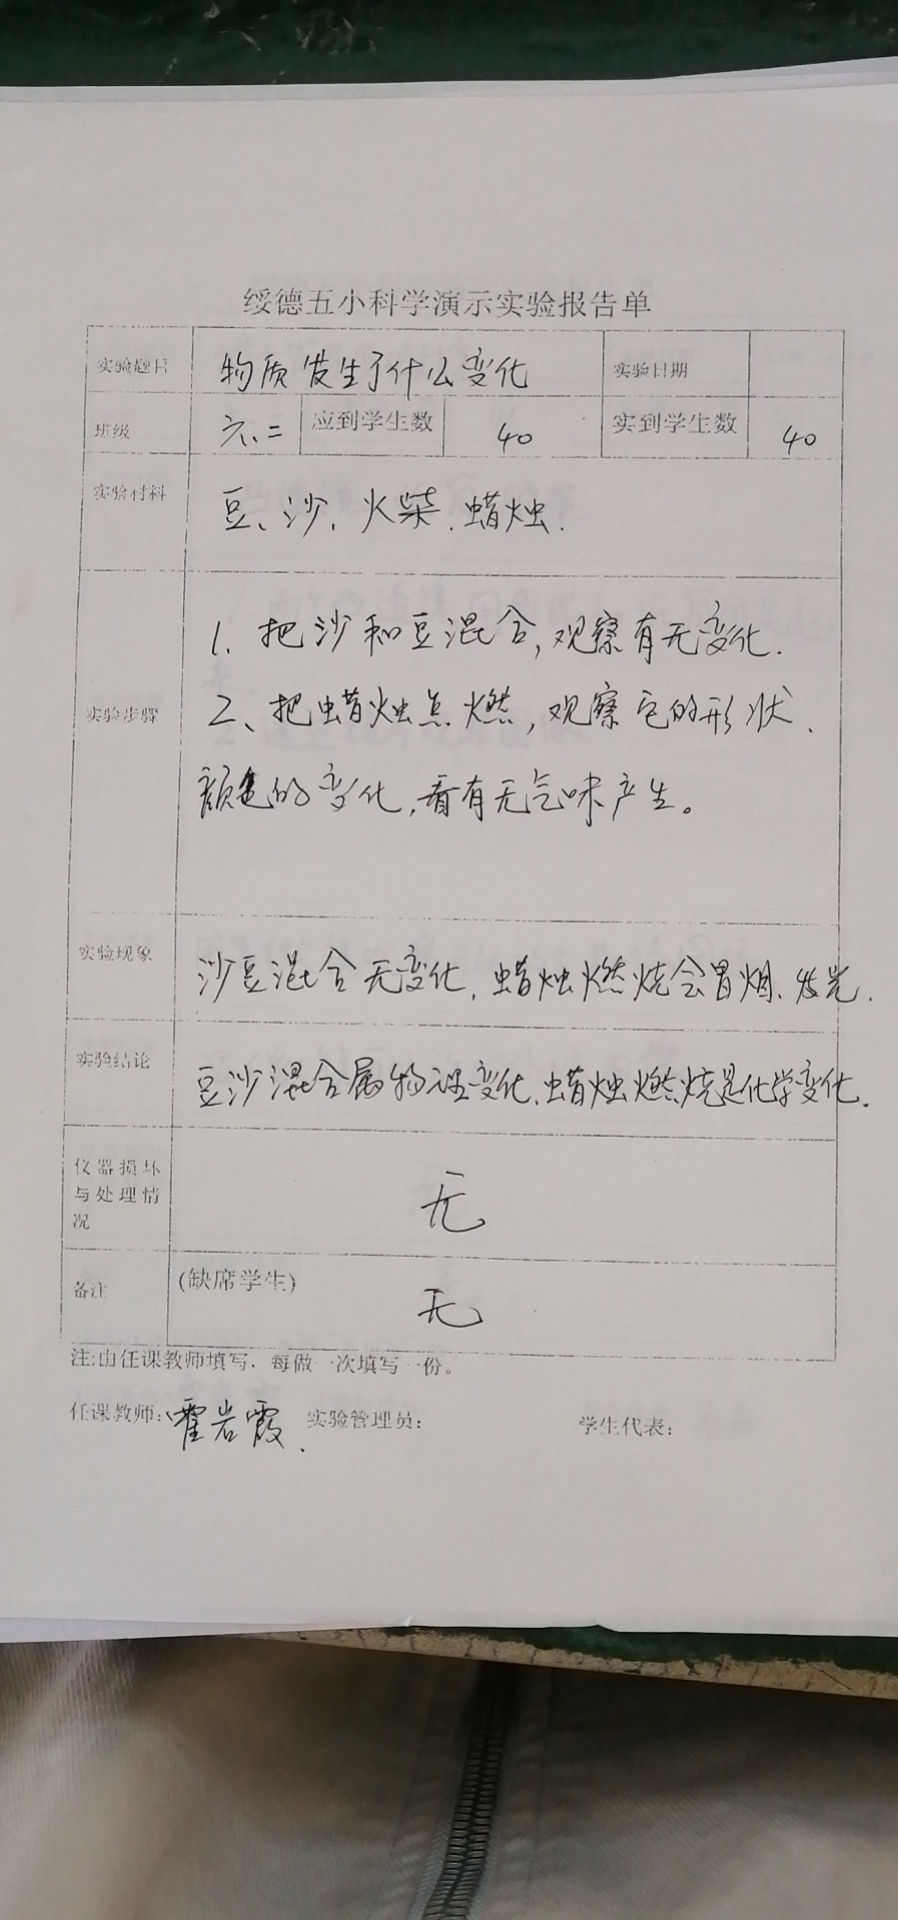 绥德五小科学演示实验报告单
实验题目 物质发生了什么变化 实验日期
班级 六、二 应到学生数 40 实到学生数 40
实验材料 豆、沙、火柴、蜡烛.
实验步骤
1. 把沙和豆混合,观察有无变化.
2、把蜡烛点燃,观察它的形状、
颜色的变化,看有无气味产生。
实验现象 沙豆混合无变化,蜡烛燃烧会冒烟、发光.
实验结论 豆沙混合属物理变化、蜡烛燃烧是化学变化.
仪器损坏
与处理情
况
无
备注 (缺席学生)
无
注:由任课教师填写,每做一次填写一份。
任课教师: 霍岩霞. 实验管理员: 学生代表: